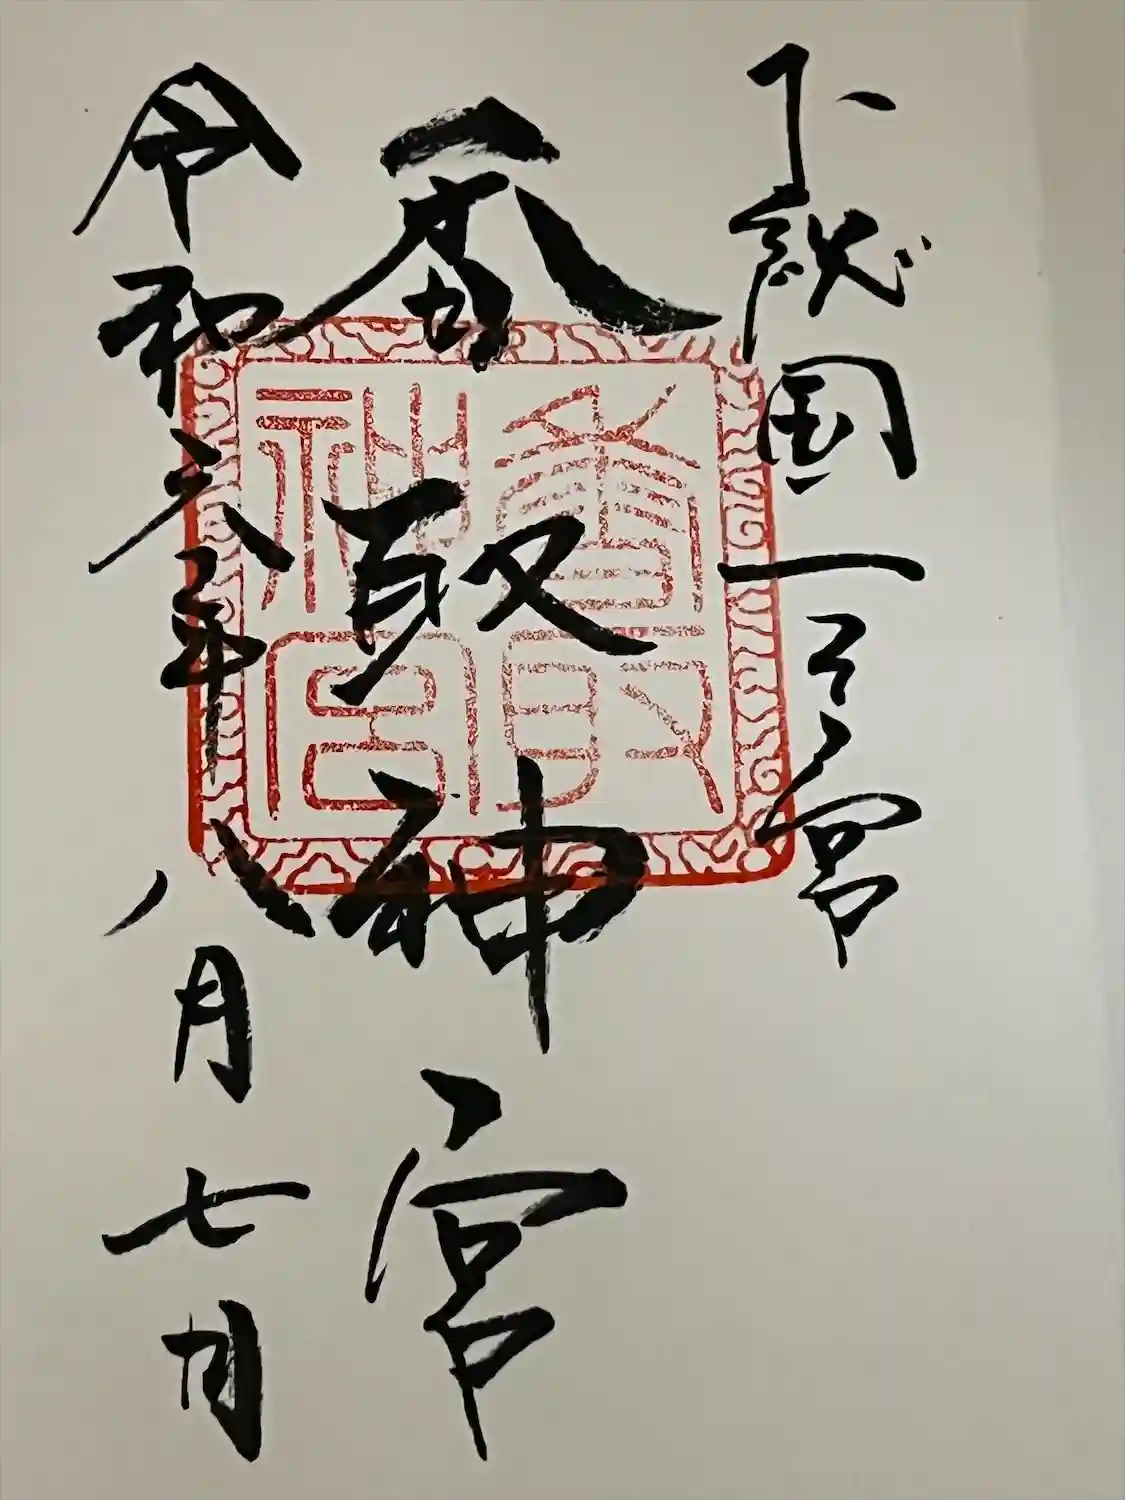 下総国一之宮
香取神宮
令和六年八月七日
香取
神宮